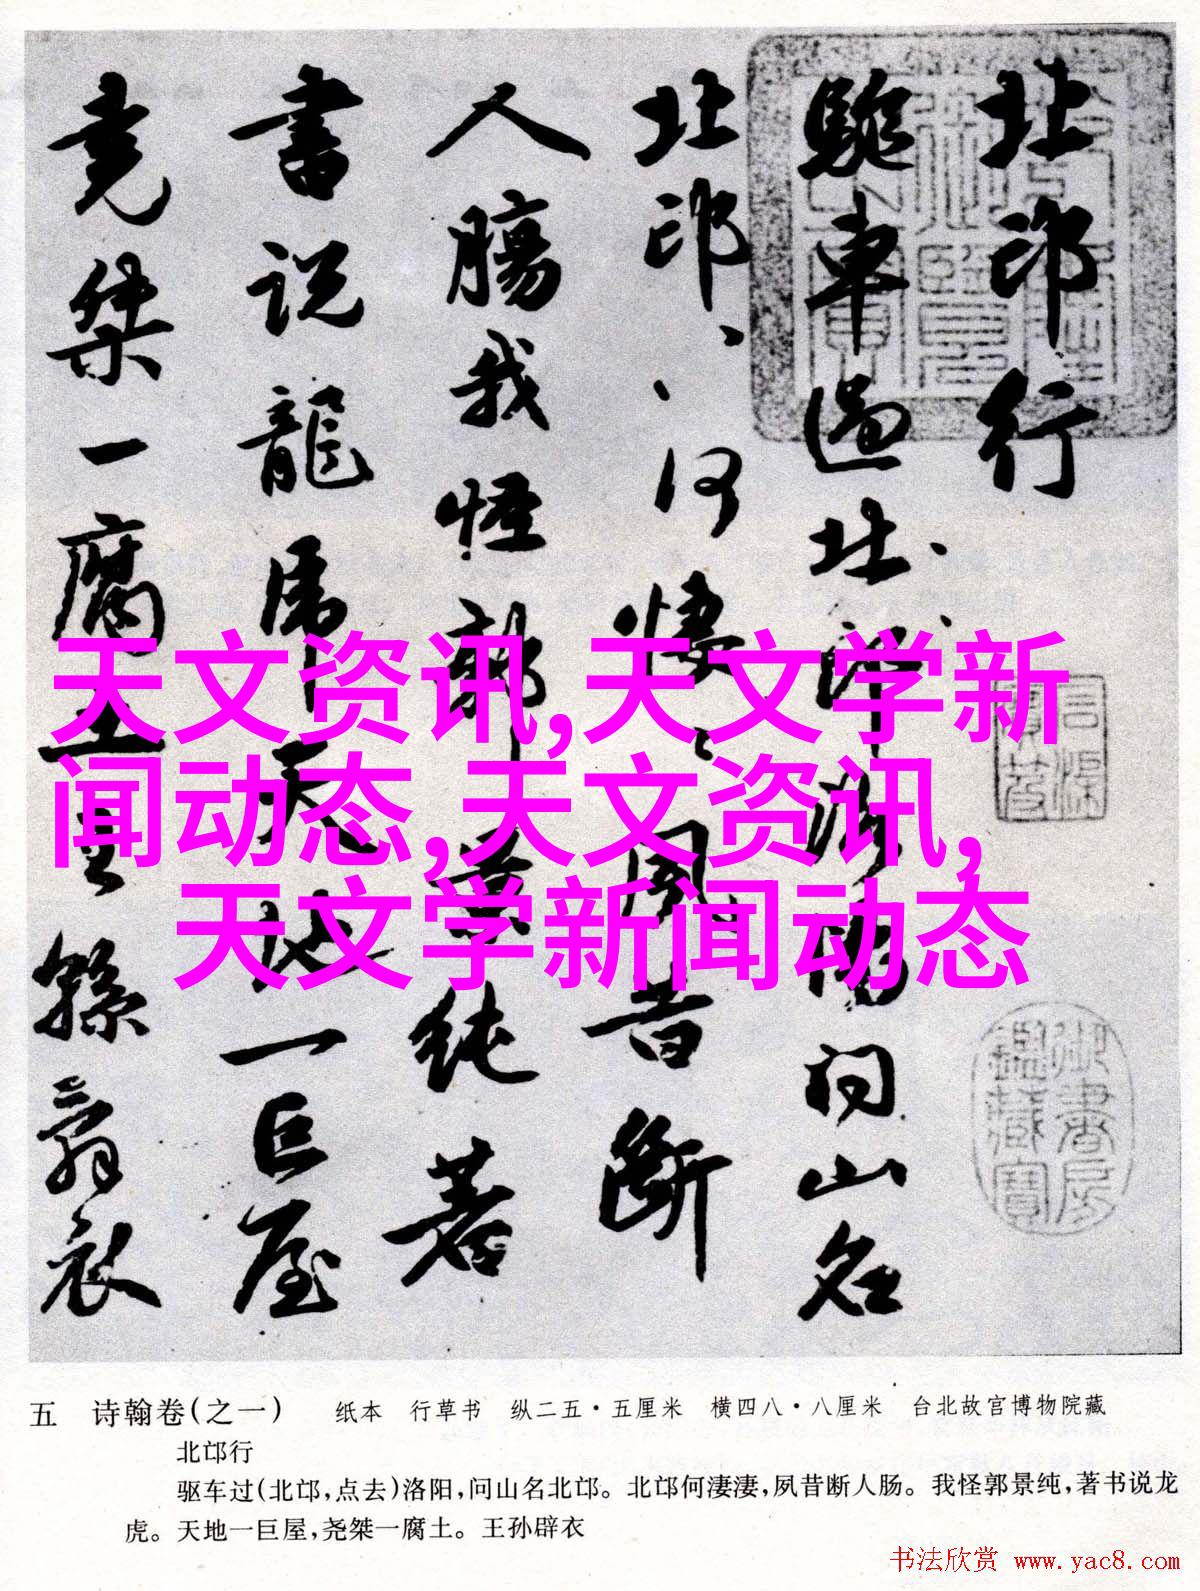 北邙行
駈車過北邙洛陽問山名
北邙、、何悽、風昔斷
人腸我怪郭景純著
書説龍虎天地一巨屋
堯桀一腐土王孫辟衣
天文资讯,天文学新
闻动态,天文资讯,
天文学新闻动态
御書房鑑藏寶
五 诗翰卷(之一) 纸本 行草书 纵二五·五厘米 横四八·八厘米 台北故宫博物院藏
北邙行
驱车过(北邙,点去)洛阳,问山名北邙。北邙何凄凄,夙昔断人肠。我怪郭景纯,著书说龙
虎。天地一巨屋,尧桀一腐土。王孙辟衣
书法欣赏 www.yac8.com